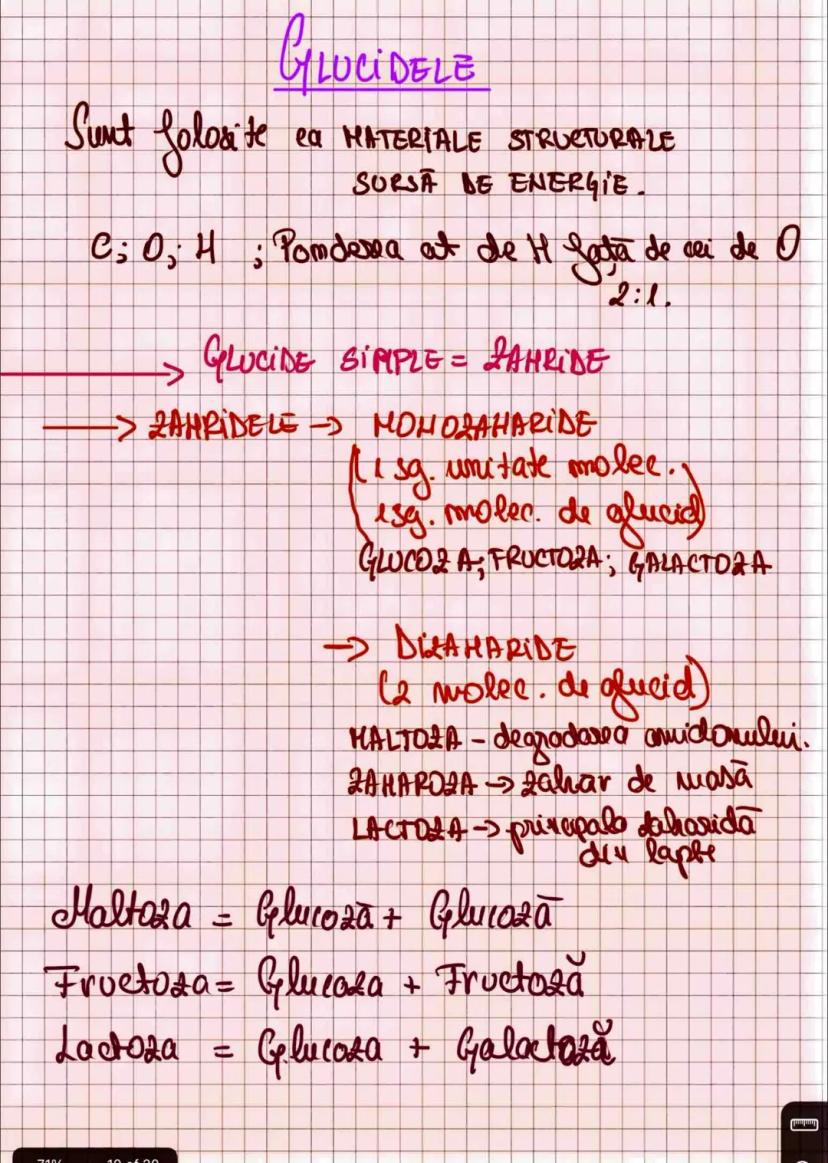 GLUCIDELE
Sunt folosite ca MATERIALE STRUCTURALE
SURSĂ DE ENERGIE.
C; O; H ; Ponderea at de H față de cei de O
2:1.
GLUCIDE SIMPLE = ZAHRIDE
ZAHRIDELE → MONOZAHARIDE
(1 sg. unitate molec.
1sg. molec. de glucid)
GLUCOZA; FRUCTOZA; GALACTOZA
→ DIZAHARIDE
(2 molec. de glucid)
MALTOZA - degradarea amidonului.
ZAHAROZA → zahar de masă
LACTOZA → principala zaharidă
din lapte
Maltoza = Glucoză + Glucoză
Fructoza = Glucoza + Fructoză
Lactoza = Glucoza + Galactoză
71% 19 of 20